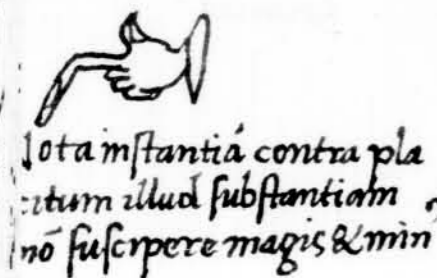 Nota instantiā contra pla
citum illud substantiam
nō suscipere magis & min